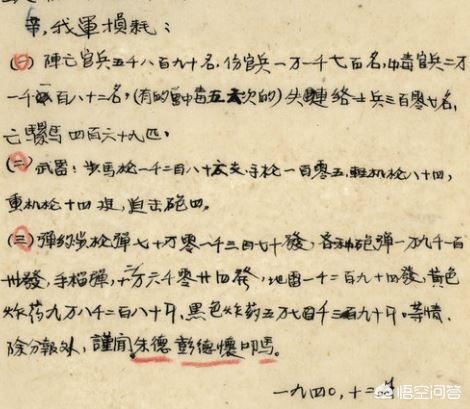 辛，我軍損耗：
(一) 陣亡官兵五千八百九十名，伤官兵一万一千七百名，中毒官兵二万
一千一百八十二名，(有的中毒五六次的) 失連絡士兵三百零七名，
亡騾馬四百六十九匹。
(二) 武器：步馬枪一千二百八十支，手枪一百零五，輕机枪八十四，
重机枪十四挺，迫击砲四。
(三) 彈約：枪彈七十万零一千三四七十發，各种砲彈一万九千一百
卅發，手榴彈，六千零廿四發，地雷一千二百九十四發，黄色
炸药九万八千二百八十斤，黑色炸药五万七百千三百九十斤。等情，
除分報外，謹聞。朱德 彭德懷叩馬。
一九四〇，十二
悟空问答